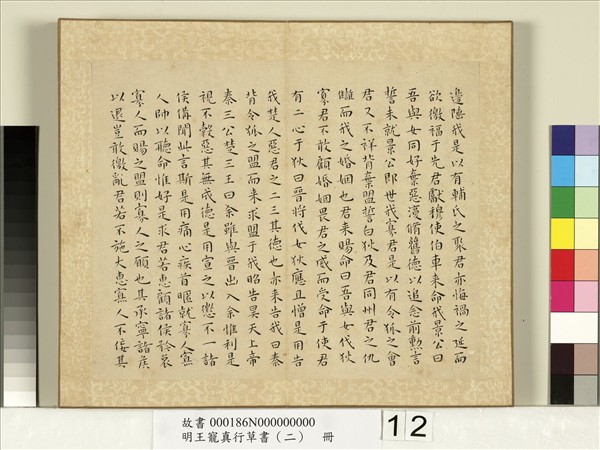 邊陲我是以有輔氏之聚君亦悔禍之延而
欲徼福于先君獻穆使伯車来命我景公曰
吾與女同好棄惡復脩舊德以追念前勲言
誓未就景公即世我寡君是以有令狐之會
君又不祥背棄盟誓白狄及君同州君之仇
讎而我之婚姻也君来賜命曰吾與女伐狄
寡君不敢顧婚姻畏君之威而受命于使君
有二心于狄曰晉將伐女狄應且憎是用告
我楚人惡君之二三其德也亦来告我曰秦
背令狐之盟而来求盟于我昭告昊天上帝
秦三公楚三王曰余雖與晉出入余惟利是
視不榖惡其無成德是用宣之以懲不一諸
侯備聞此言斯是用痛心疾首暱就寡人寡
人帥以聽命惟好是求君若惠顧諸侯矜哀
寡人而賜之盟則寡人之願也其承寧諸侯
以退豈敢徼亂君若不施大惠寡人不佞其
故書 000186N000000000
明王寵真行草書（二） 冊
12